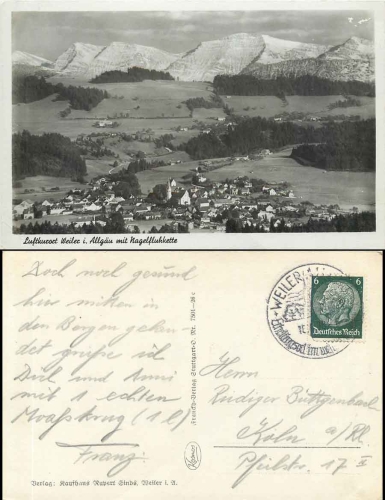 Luftkurort Weiler i. Allgäu mit Nagelfluhkette
Doch noch gesund
hier mitten in
den Bergen gelan-
det grüße ich
Dich und Anni
mit 1 echten
Maßkrug (1 l)
Franz.
Verlag: Kaufhaus Rupert Hinds, Weiler i. A.
Kosmos-Verlag Stuttgart-O. Nr.
Kosmos
WEILER
6 6
Deutsches Reich
Herrn
Rüdiger Büttgenbach
Köln a/Rh
Pfeilstr. 17 II